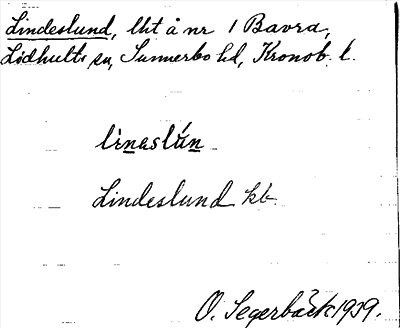 Lindeslund, lht å nr 1 Bavra,
Lidhults sn, Sunnerbo hd, Kronob. l.
Lindeslund kb.
O. Segerbäck 1959.